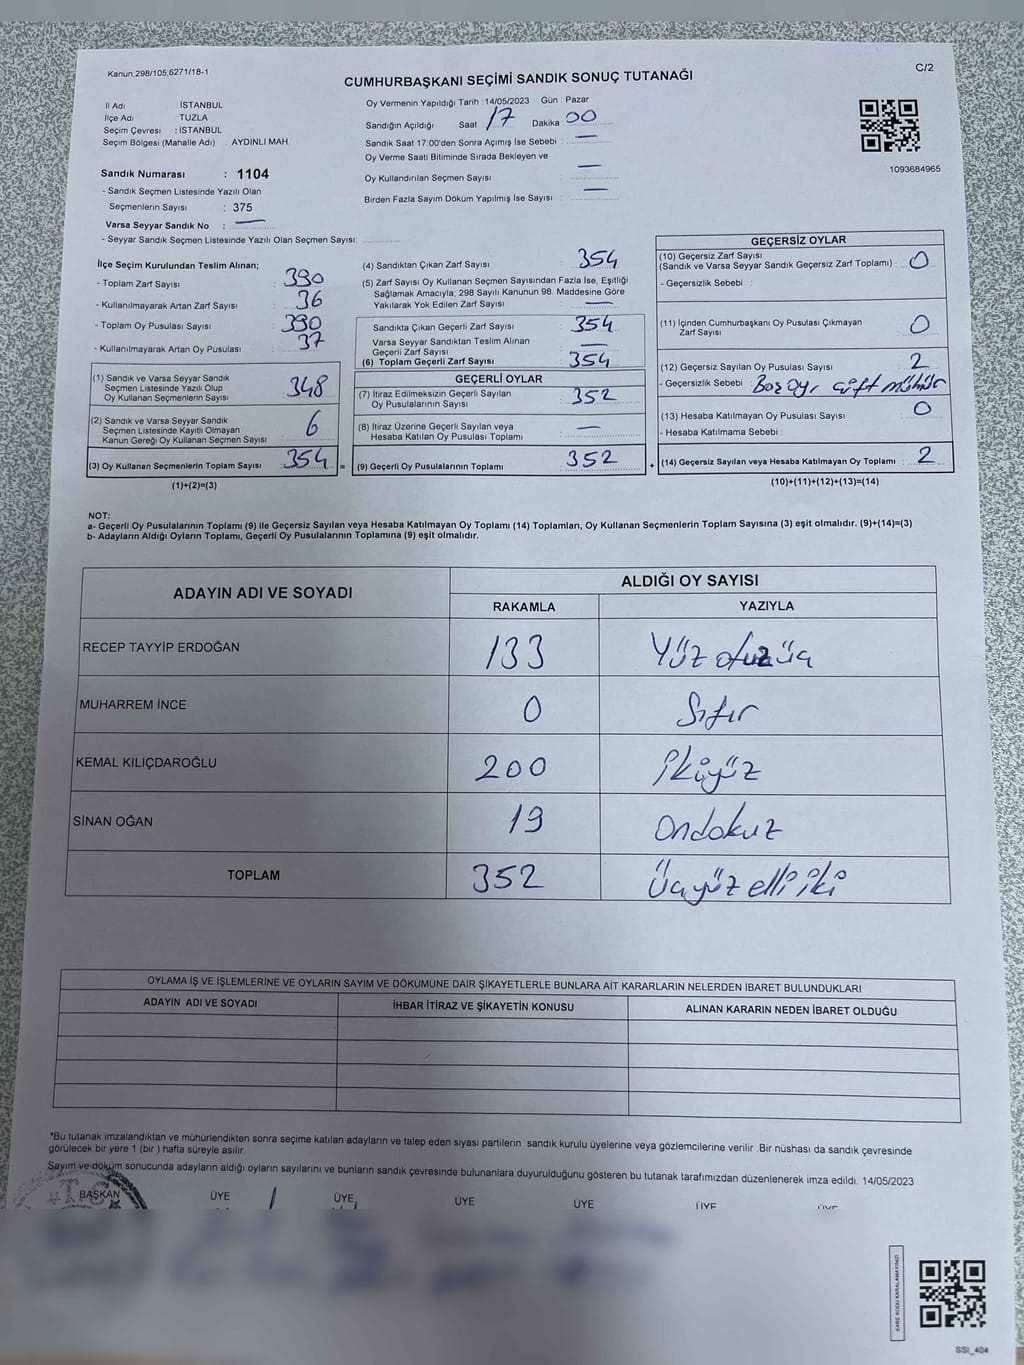 Kanun,298/105,6271/18-1
C/2
CUMHURBAŞKANI SEÇİMİ SANDIK SONUÇ TUTANAĞI
İl Adı : İSTANBUL
İlçe Adı : TUZLA
Seçim Çevresi : İSTANBUL
Seçim Bölgesi (Mahalle Adı) : AYDINLI MAH.
Sandık Numarası : 1104
- Sandık Seçmen Listesinde Yazılı Olan
Seçmenlerin Sayısı : 375
Varsa Seyyar Sandık No : —
- Seyyar Sandık Seçmen Listesinde Yazılı Olan Seçmen Sayısı:
Oy Vermenin Yapıldığı Tarih :14/05/2023 Gün : Pazar
Sandığın Açıldığı Saat : 17 Dakika : 00
Sandık Saat 17:00'den Sonra Açımış İse Sebebi : —
Oy Verme Saati Bitiminde Sırada Bekleyen ve
Oy Kullandırılan Seçmen Sayısı : —
Birden Fazla Sayım Döküm Yapılmış İse Sayısı : —
1093684965
İlçe Seçim Kurulundan Teslim Alınan;
- Toplam Zarf Sayısı : 390
- Kullanılmayarak Artan Zarf Sayısı : 36
- Toplam Oy Pusulası Sayısı : 390
- Kullanılmayarak Artan Oy Pusulası : 37
(1) Sandık ve Varsa Seyyar Sandık
Seçmen Listesinde Yazılı Olup
Oy Kullanan Seçmenlerin Sayısı : 348
(2) Sandık ve Varsa Seyyar Sandık
Seçmen Listesinde Kayıtlı Olmayan
Kanun Gereği Oy Kullanan Seçmen Sayısı : 6
(3) Oy Kullanan Seçmenlerin Toplam Sayısı : 354
(1)+(2)=(3)
(4) Sandıktan Çıkan Zarf Sayısı : 354
(5) Zarf Sayısı Oy Kullanan Seçmen Sayısından Fazla İse, Eşitliği
Sağlamak Amacıyla, 298 Sayılı Kanunun 98. Maddesine Göre
Yakılarak Yok Edilen Zarf Sayısı : —
Sandıkta Çıkan Geçerli Zarf Sayısı : 354
Varsa Seyyar Sandıktan Teslim Alınan
Geçerli Zarf Sayısı : —
(6) Toplam Geçerli Zarf Sayısı : 354
GEÇERLİ OYLAR
(7) İtiraz Edilmeksizin Geçerli Sayılan
Oy Pusulalarının Sayısı : 352
(8) İtiraz Üzerine Geçerli Sayılan veya
Hesaba Katılan Oy Pusulası Toplamı : —
= (9) Geçerli Oy Pusulalarının Toplamı : 352
GEÇERSİZ OYLAR
(10) Geçersiz Zarf Sayısı
(Sandık ve Varsa Seyyar Sandık Geçersiz Zarf Toplamı) : 0
- Geçersizlik Sebebi :
(11) İçinden Cumhurbaşkanı Oy Pusulası Çıkmayan
Zarf Sayısı : 0
(12) Geçersiz Sayılan Oy Pusulası Sayısı : 2
- Geçersizlik Sebebi : Boş oy, çift mühür
(13) Hesaba Katılmayan Oy Pusulası Sayısı : 0
- Hesaba Katılmama Sebebi :
+ (14) Geçersiz Sayılan veya Hesaba Katılmayan Oy Toplamı : 2
(10)+(11)+(12)+(13)=(14)
NOT:
a- Geçerli Oy Pusulalarının Toplamı (9) ile Geçersiz Sayılan veya Hesaba Katılmayan Oy Toplamı (14) Toplamları, Oy Kullanan Seçmenlerin Toplam Sayısına (3) eşit olmalıdır. (9)+(14)=(3)
b- Adayların Aldığı Oyların Toplamı, Geçerli Oy Pusulalarının Toplamına (9) eşit olmalıdır.
ADAYIN ADI VE SOYADI
ALDIĞI OY SAYISI
RAKAMLA YAZIYLA
RECEP TAYYİP ERDOĞAN 133 Yüz otuz üç
MUHARREM İNCE 0 Sıfır
KEMAL KILIÇDAROĞLU 200 İkiyüz
SİNAN OĞAN 19 Ondokuz
TOPLAM 352 Üçyüz elli iki
OYLAMA İŞ VE İŞLEMLERİNE VE OYLARIN SAYIM VE DÖKÜMÜNE DAİR ŞİKAYETLERLE BUNLARA AİT KARARLARIN NELERDEN İBARET BULUNDUKLARI
ADAYIN ADI VE SOYADI İHBAR İTİRAZ VE ŞİKAYETİN KONUSU ALINAN KARARIN NEDEN İBARET OLDUĞU
*Bu tutanak imzalandıktan ve mühürlendikten sonra seçime katılan adayların ve talep eden siyasi partilerin sandık kurulu üyelerine veya gözlemcilerine verilir .Bir nüshası da sandık çevresinde
görülecek bir yere 1 (bir ) hafta süreyle asılır.
Sayım ve döküm sonucunda adayların aldığı oyların sayılarını ve bunların sandık çevresinde bulunanlara duyurulduğunu gösteren bu tutanak tarafımızdan düzenlenerek imza edildi. 14/05/2023
BAŞKAN ÜYE ÜYE ÜYE ÜYE ÜYE ÜYE
KARE KODU KARALAMAYINIZ!
SSI_404